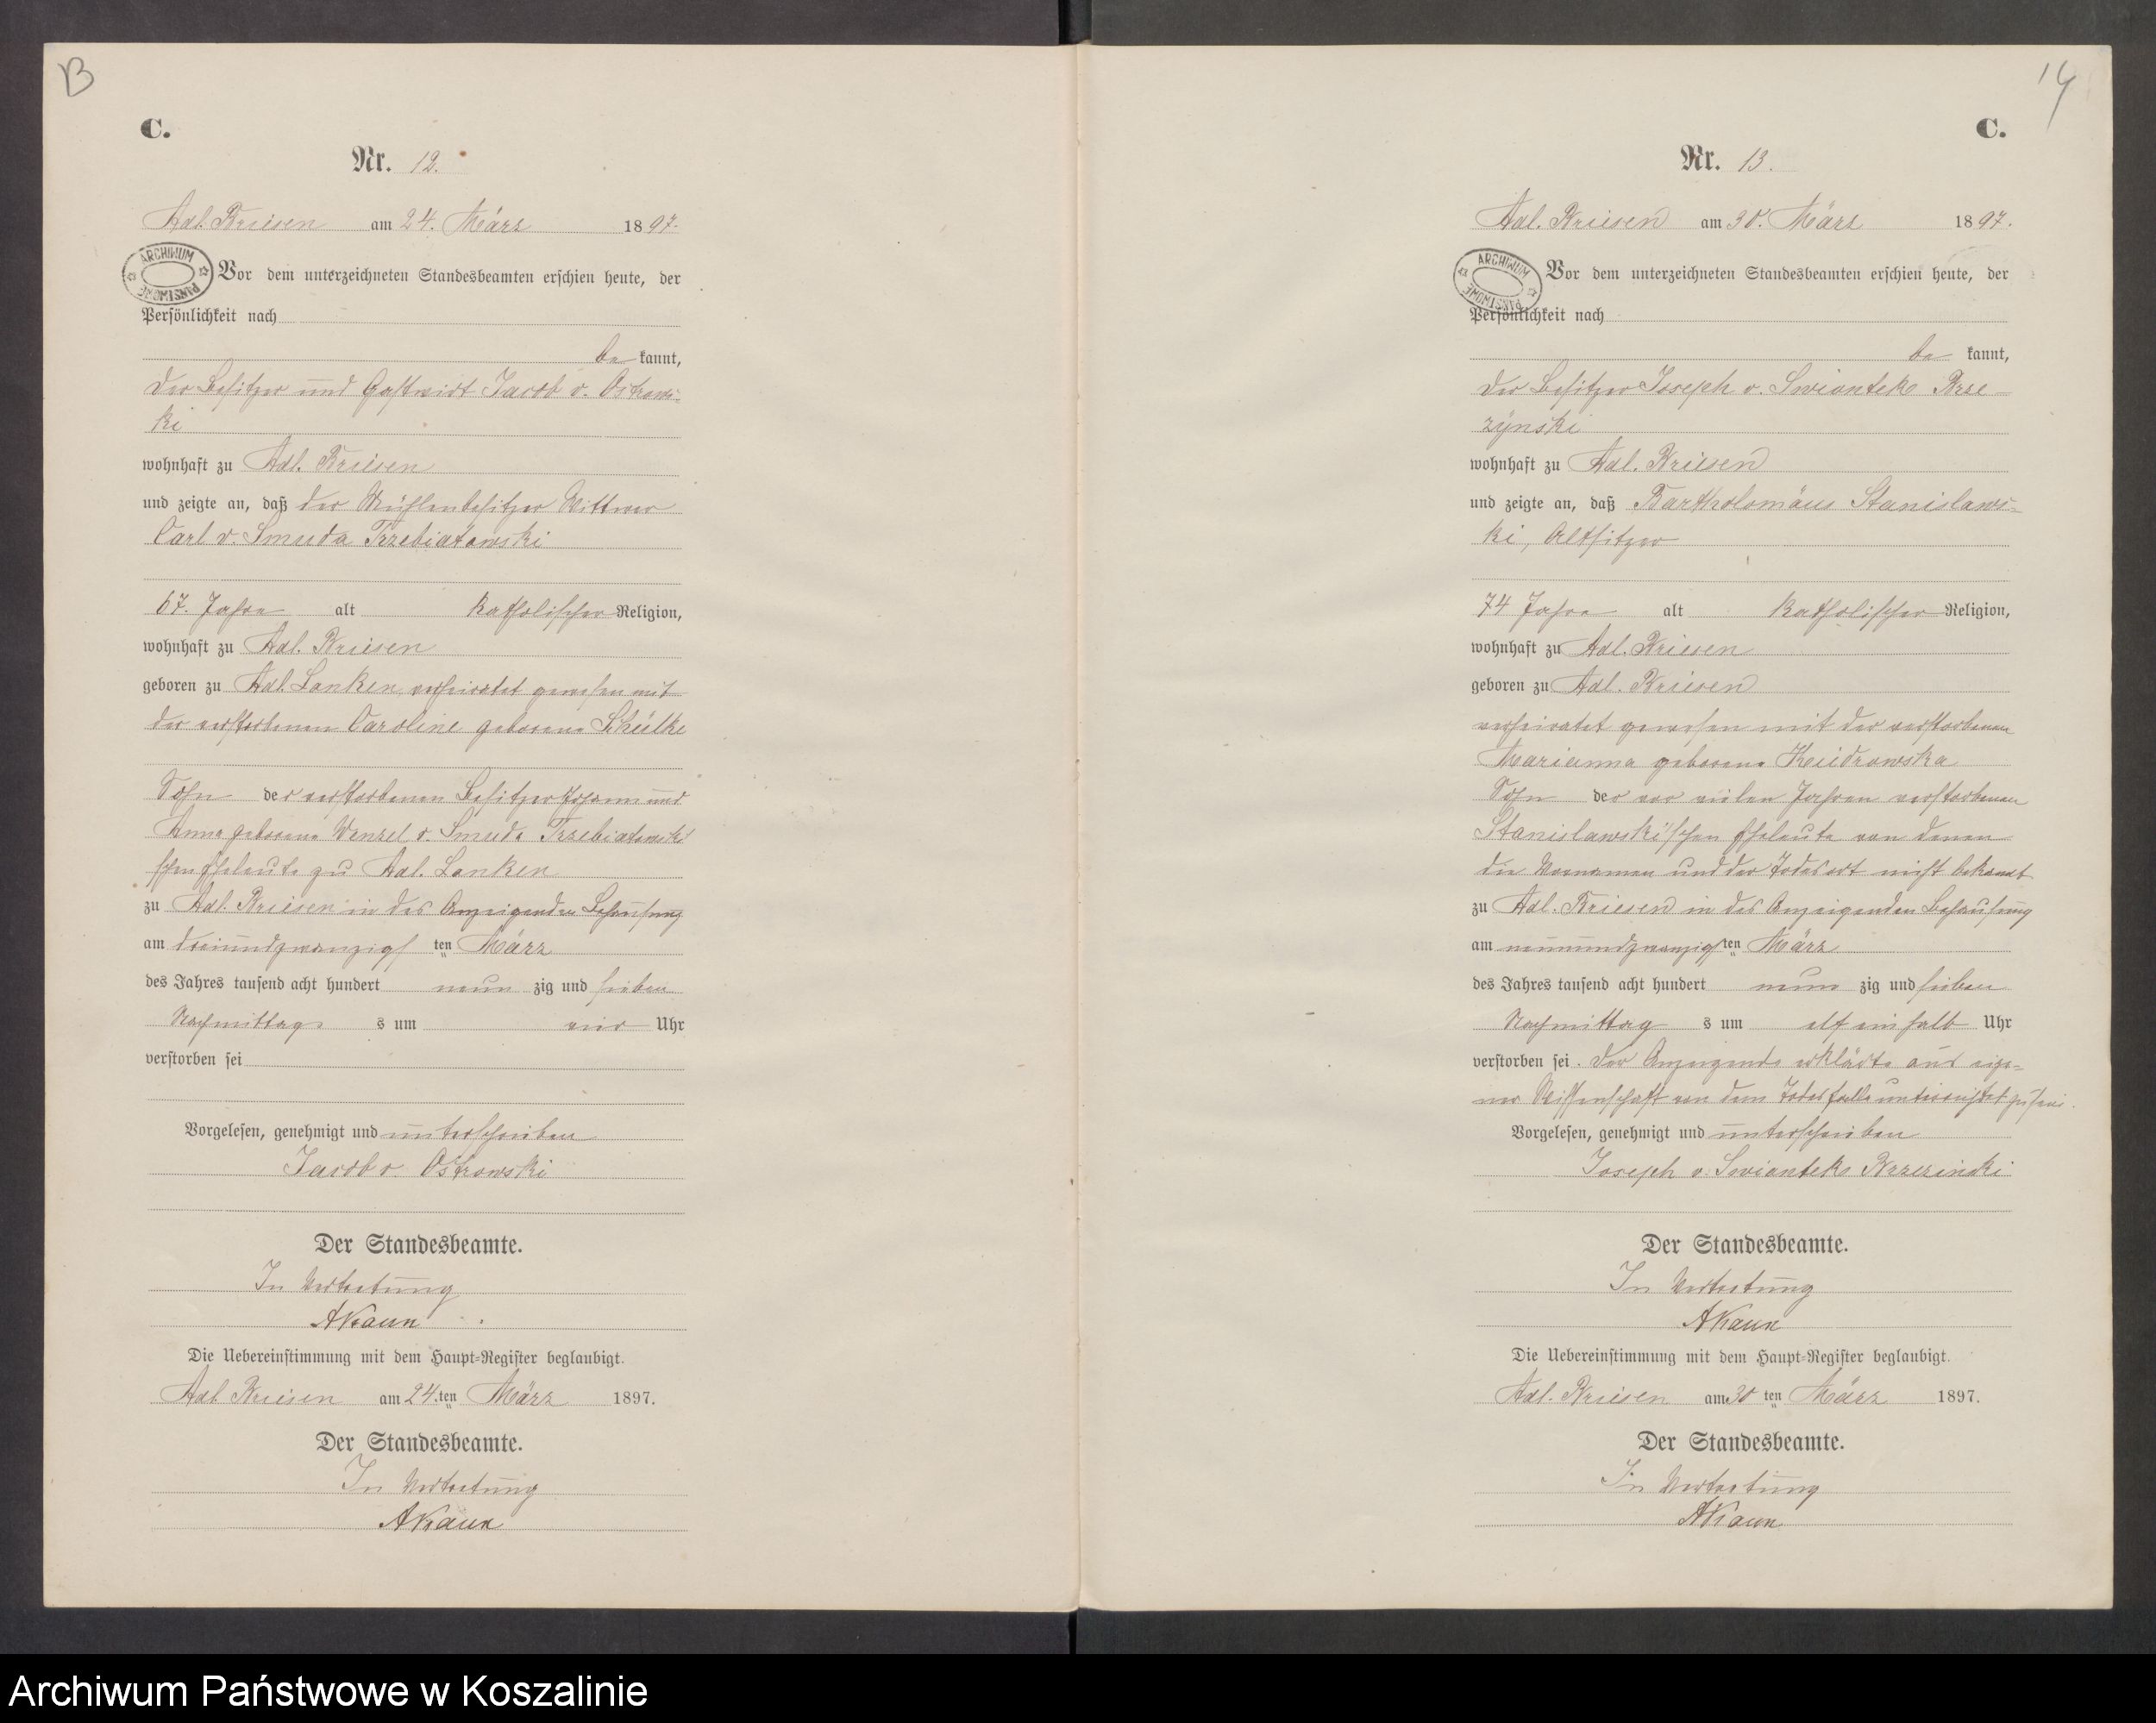 B
C.
Nr. 12.
Adl. Briesen am 24. März 1897.
ARCHIWUM PAŃSTWOWE
Vor dem unterzeichneten Standesbeamten erschien heute, der
Persönlichkeit nach
be kannt,
der Besitzer und Gastwirt Jacob v. Ostrows-
ki
wohnhaft zu Adl. Briesen
und zeigte an, daß der Mühlenbesitzer Wittwer
Carl v. Smuda Trzebiatowski
67. Jahre alt katholischer Religion,
wohnhaft zu Adl. Briesen
geboren zu Adl. Lanken verheiratet gewesen mit
der verstorbenen Caroline geborene
Sohn der verstorbenen Besitzer Johann und
Anna geborene Wenzel v. Smuda Trzebiatowski
schen Eheleute zu Adl. Lanken
zu Adl. Briesen in des Anzeigenden Behausung
am dreiundzwanzigs ten März
des Jahres tausend acht hundert neun zig und sieben
Nachmittags s um vier Uhr
verstorben sei
Vorgelesen, genehmigt und unterschrieben
Jacob v. Ostrowski
Der Standesbeamte.
In Vertretung
AKraun
Die Uebereinstimmung mit dem Haupt-Register beglaubigt.
Adl. Briesen am 24. ten März 1897.
Der Standesbeamte.
In Vertretung
14
C.
Nr. 13.
Adl. Briesen am 30. März 1897.
ARCHIWUM PAŃSTWOWE
Vor dem unterzeichneten Standesbeamten erschien heute, der
Persönlichkeit nach
be kannt,
der Besitzer Joseph v. Swiantek Brze-
zynski
wohnhaft zu Adl. Briesen
und zeigte an, daß Bartholomäus Stanislaws-
ki, Altsitzer
74 Jahre alt katholischer Religion,
wohnhaft zu Adl. Briesen
geboren zu Adl. Briesen
verheiratet gewesen mit der verstorbenen
Marianna geborene
Sohn der vor vielen Jahren verstorbenen
Stanislawski'schen Eheleute von denen
die Vornamen und der Todesort nicht bekannt
zu Adl. Briesen in des Anzeigenden Behausung
am neunundzwanzigs ten März
des Jahres tausend acht hundert neun zig und sieben
Nachmittag s um elf einhalb Uhr
verstorben sei. Der Anzeigende erklärte aus eige-
ner Wissenschaft von dem Todesfalle unterrichtet zu sein.
Vorgelesen, genehmigt und unterschrieben
Joseph v. Swiantek Brzezinski
Der Standesbeamte.
In Vertretung
Die Uebereinstimmung mit dem Haupt-Register beglaubigt.
Adl. Briesen am 30 ten März 1897.
Der Standesbeamte.
In Vertretung
Archiwum Państwowe w Koszalinie